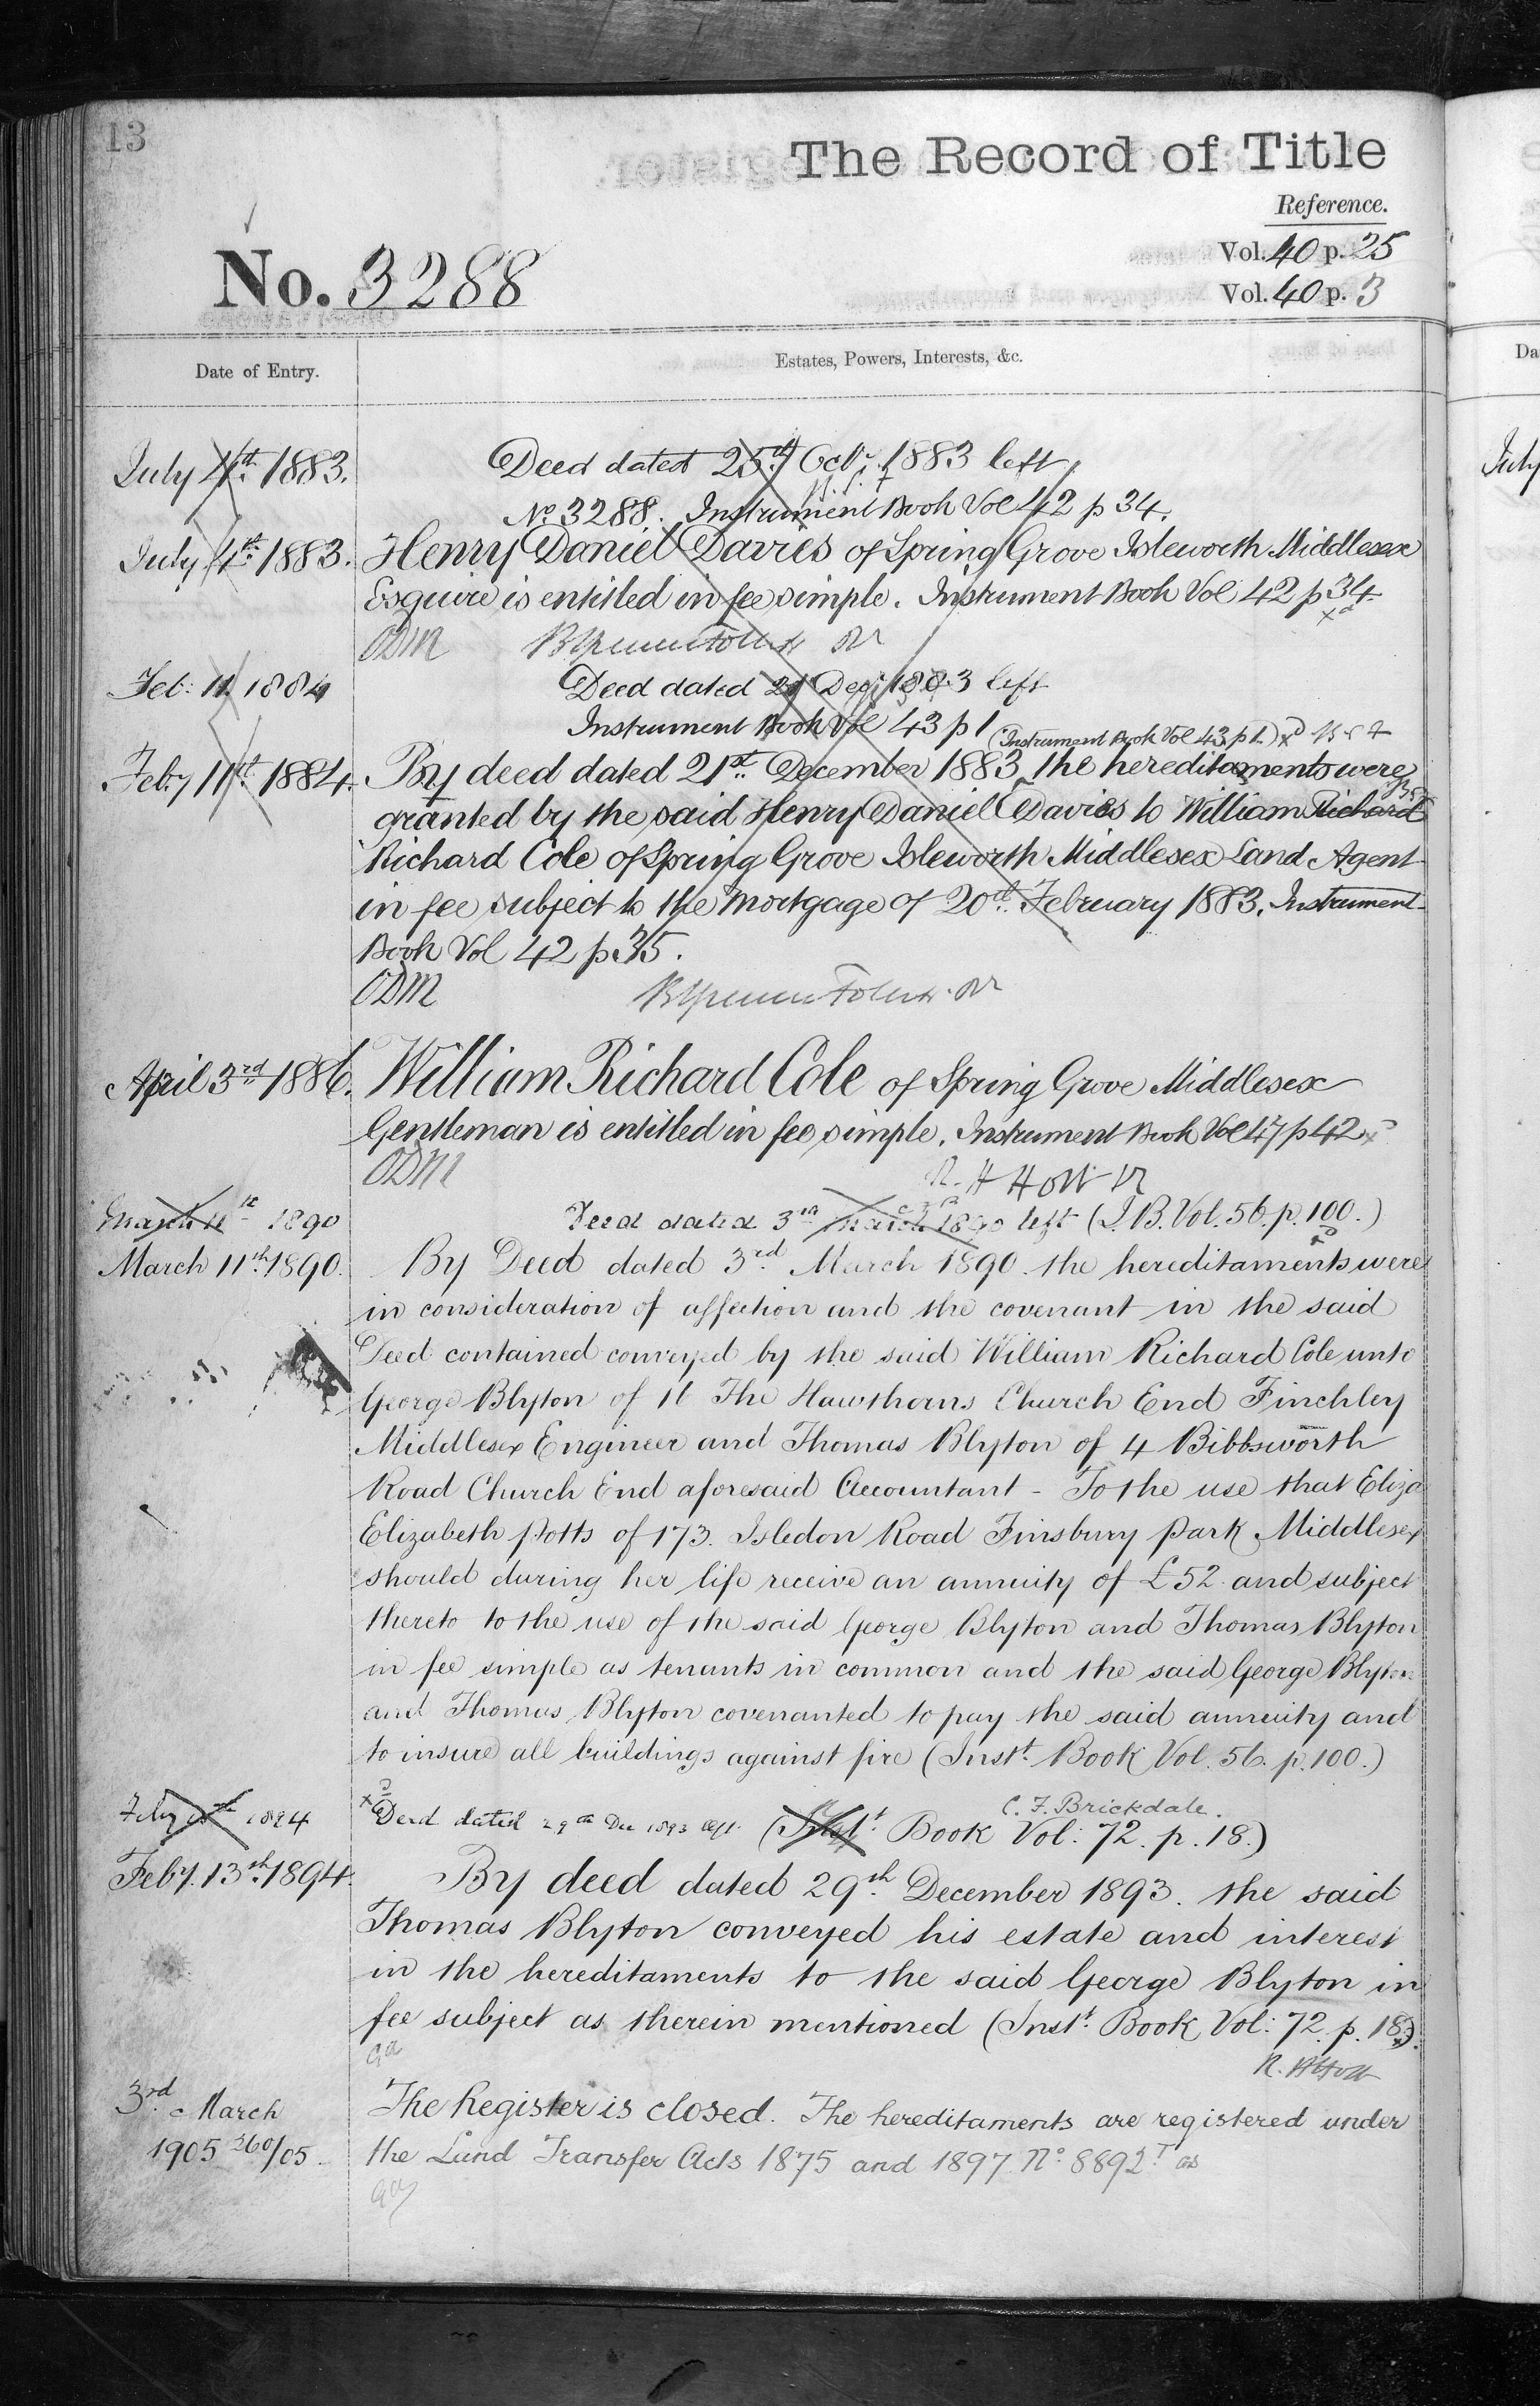 13
The Record of Title
Reference.
Vol. 40 p. 25
No. 3288
Vol. 40 p. 3
Date of Entry.
Estates, Powers, Interests, &c.
July 4th 1883. Deed dated 25th Octr. 1883 left
No 3288. Instrument Book Vol 42 p 34.
July 4th 1883. Henry Daniel Davies of Spring Grove Isleworth Middlesex
Esquire is entitled in fee simple. Instrument Book Vol 42 p 34
ODM
Feb: 11 1884 Deed dated 21 Dec 1883 left
Instrument Book Vol 43 p 1 (Instrument Book Vol 43 p 1.)
Feby 11th 1884. By deed dated 21st December 1883 the hereditaments were
granted by the said Henry Daniel Davies to William Richard
Richard Cole of Spring Grove Isleworth Middlesex Land Agent
in fee subject to the Mortgage of 20th February 1883. Instrument
Book Vol 42 p. 35.
ODM
April 3rd 1886. William Richard Cole of Spring Grove Middlesex
Gentleman is entitled in fee simple. Instrument Book Vol 47 p 42
ODM
March 11th 1890 Deed dated 3rd March 1890 left (I.B. Vol. 56. p. 100.)
March 11th 1890. By Deed dated 3rd March 1890 the hereditaments were
in consideration of affection and the covenant in the said
Deed contained conveyed by the said William Richard Cole unto
George Blyton of 11 The Hawthorns Church End Finchley
Middlesex Engineer and Thomas Blyton of 4 Bibbsworth
Road Church End aforesaid Accountant - To the use that Eliza
Elizabeth Potts of 173. Isledon Road Finsbury Park Middlesex
should during her life receive an annuity of £52 and subject
thereto to the use of the said George Blyton and Thomas Blyton
in fee simple as tenants in common and the said George Blyton
and Thomas Blyton covenanted to pay the said annuity and
to insure all buildings against fire (Inst. Book Vol. 56. p. 100.)
C. F. Brickdale.
Feby 1894 Deed dated 29th Dec 1893 left (Inst. Book Vol: 72. p. 18.)
Feby. 13th 1894. By deed dated 29th December 1893. the said
Thomas Blyton conveyed his estate and interest
in the hereditaments to the said George Blyton in
fee subject as therein mentioned (Inst. Book Vol: 72. p. 18).
3rd March The Register is closed. The hereditaments are registered under
1905 260/05. the Land Transfer Acts 1875 and 1897 No. 8892